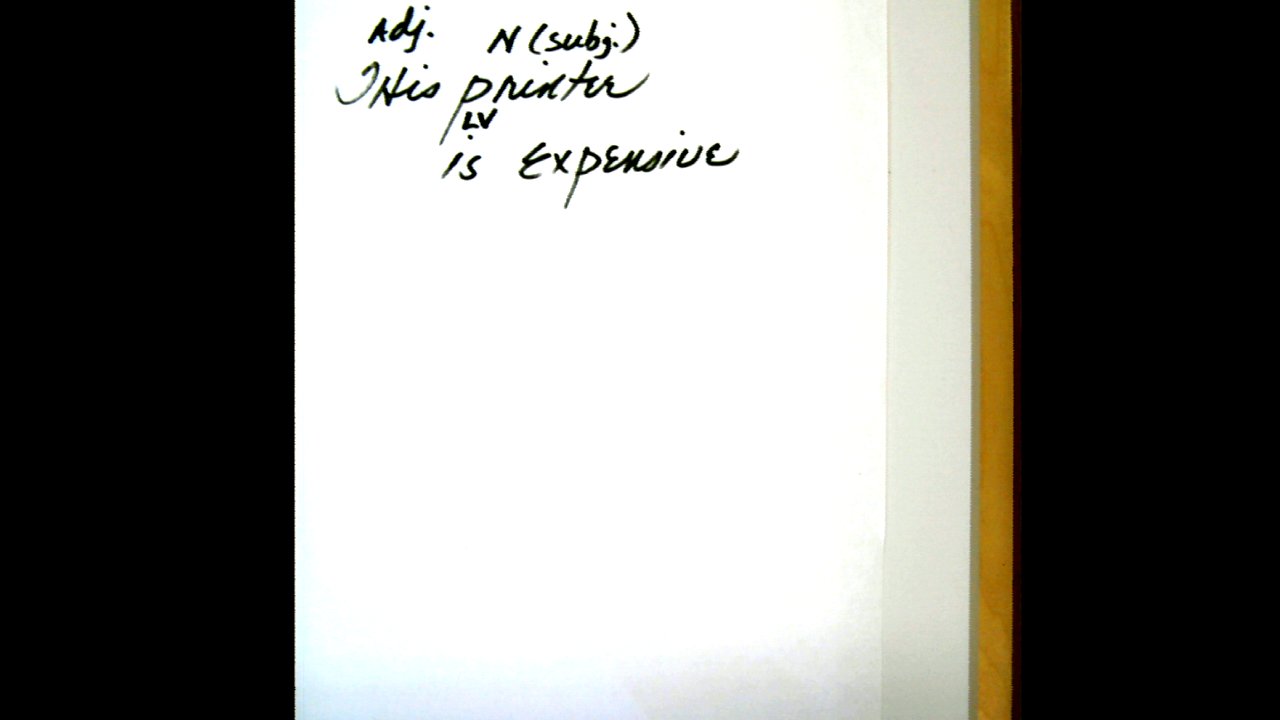 Adj. N (subj.)
THis printer
LV
is Expensive